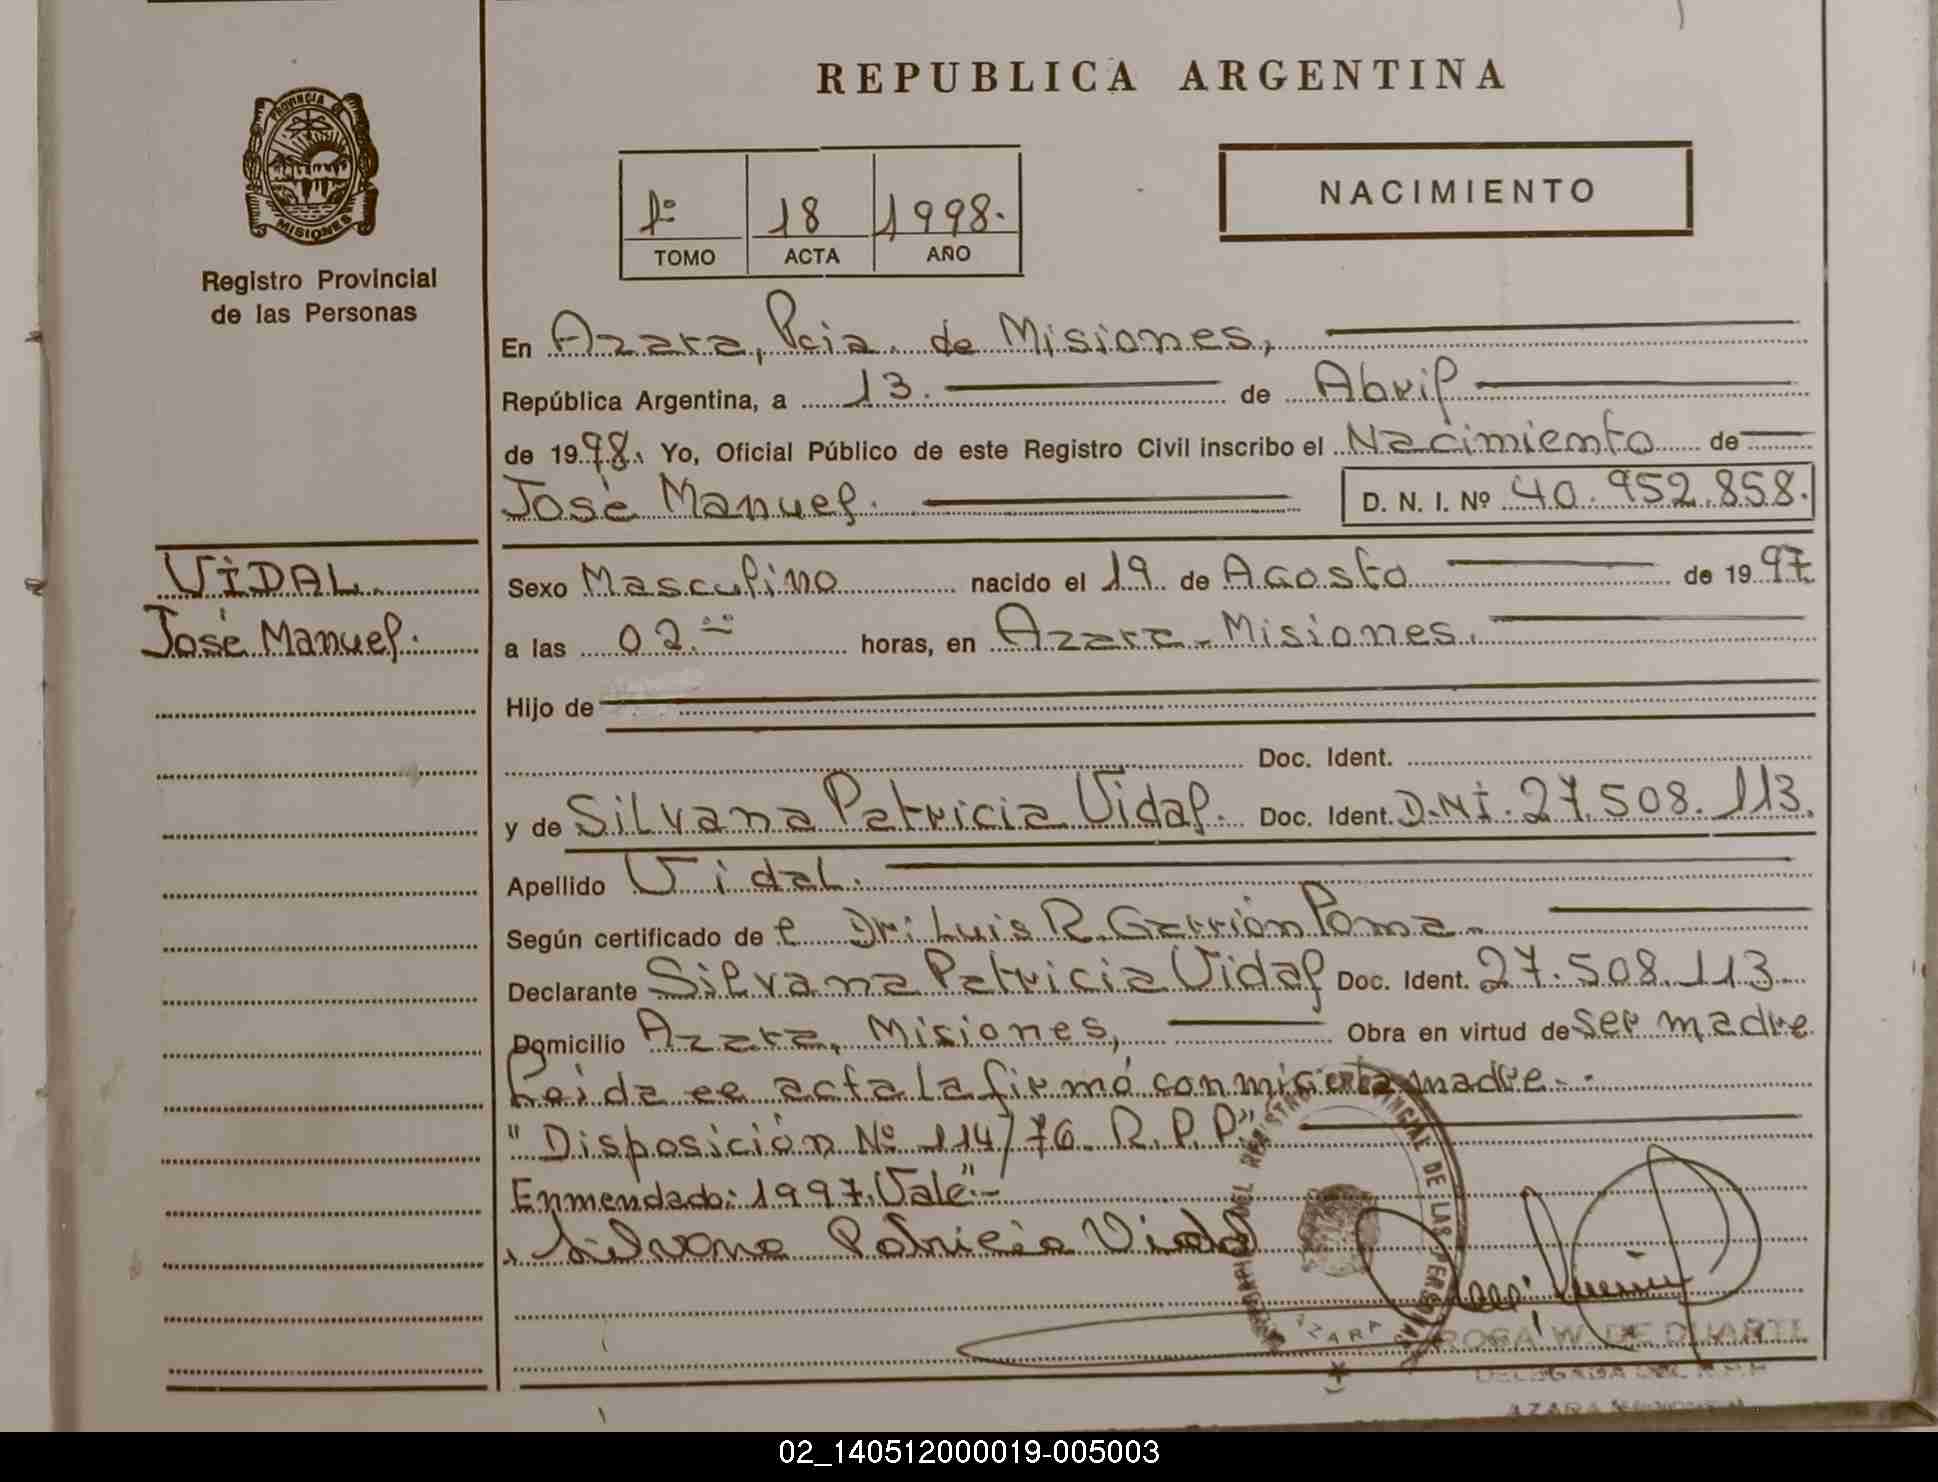 REPUBLICA ARGENTINA
PROVINCIA DE
MISIONES
Registro Provincial
de las Personas
1º 18 1998.
TOMO ACTA AÑO
NACIMIENTO
En Azara, Pcia. de Misiones,
República Argentina, a 13. de Abril
de 1998. Yo, Oficial Público de este Registro Civil inscribo el Nacimiento de
José Manuel. D. N. I. Nº 40.952.858.
VIDAL.
José Manuel.
Sexo Masculino nacido el 19 de Agosto de 1997
a las 02.00 horas, en Azara - Misiones.
Hijo de
Doc. Ident.
y de Silvana Patricia Vidal. Doc. Ident. D.N.I. 27.508.113.
Apellido Vidal.
Según certificado de l Dr: Luis R. Garrión Poma.
Declarante Silvana Patricia Vidal Doc. Ident. 27.508.113
Domicilio Azara, Misiones, Obra en virtud de ser madre
Leida el acta la firmó conmigo la madre.-
"Disposición Nº 114/76 R.P.P"
Enmendado: 1997. Vale"-
Silvana Patricia Vidal
REGISTRO PROVINCIAL DE LAS PERSONAS
AZARA
ROSA W. DE DUARTE
DELEGADA DEL R.P.P
AZARA
02_140512000019-005003